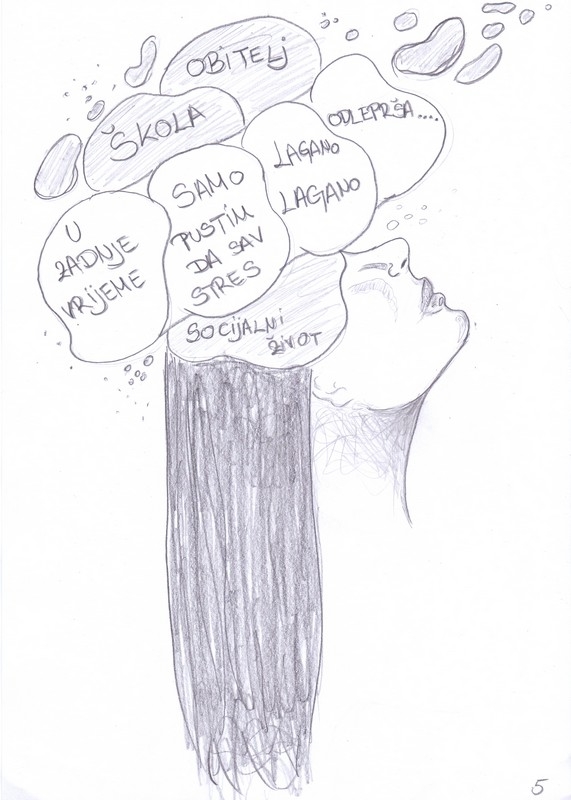 OBITELJ
ŠKOLA
ODLEPRŠA....
LAGANO
LAGANO
SAMO
PUSTIM
DA SAV
STRES
U
ZADNJE
VRIJEME
SOCIJALNI
ŽIVOT
5